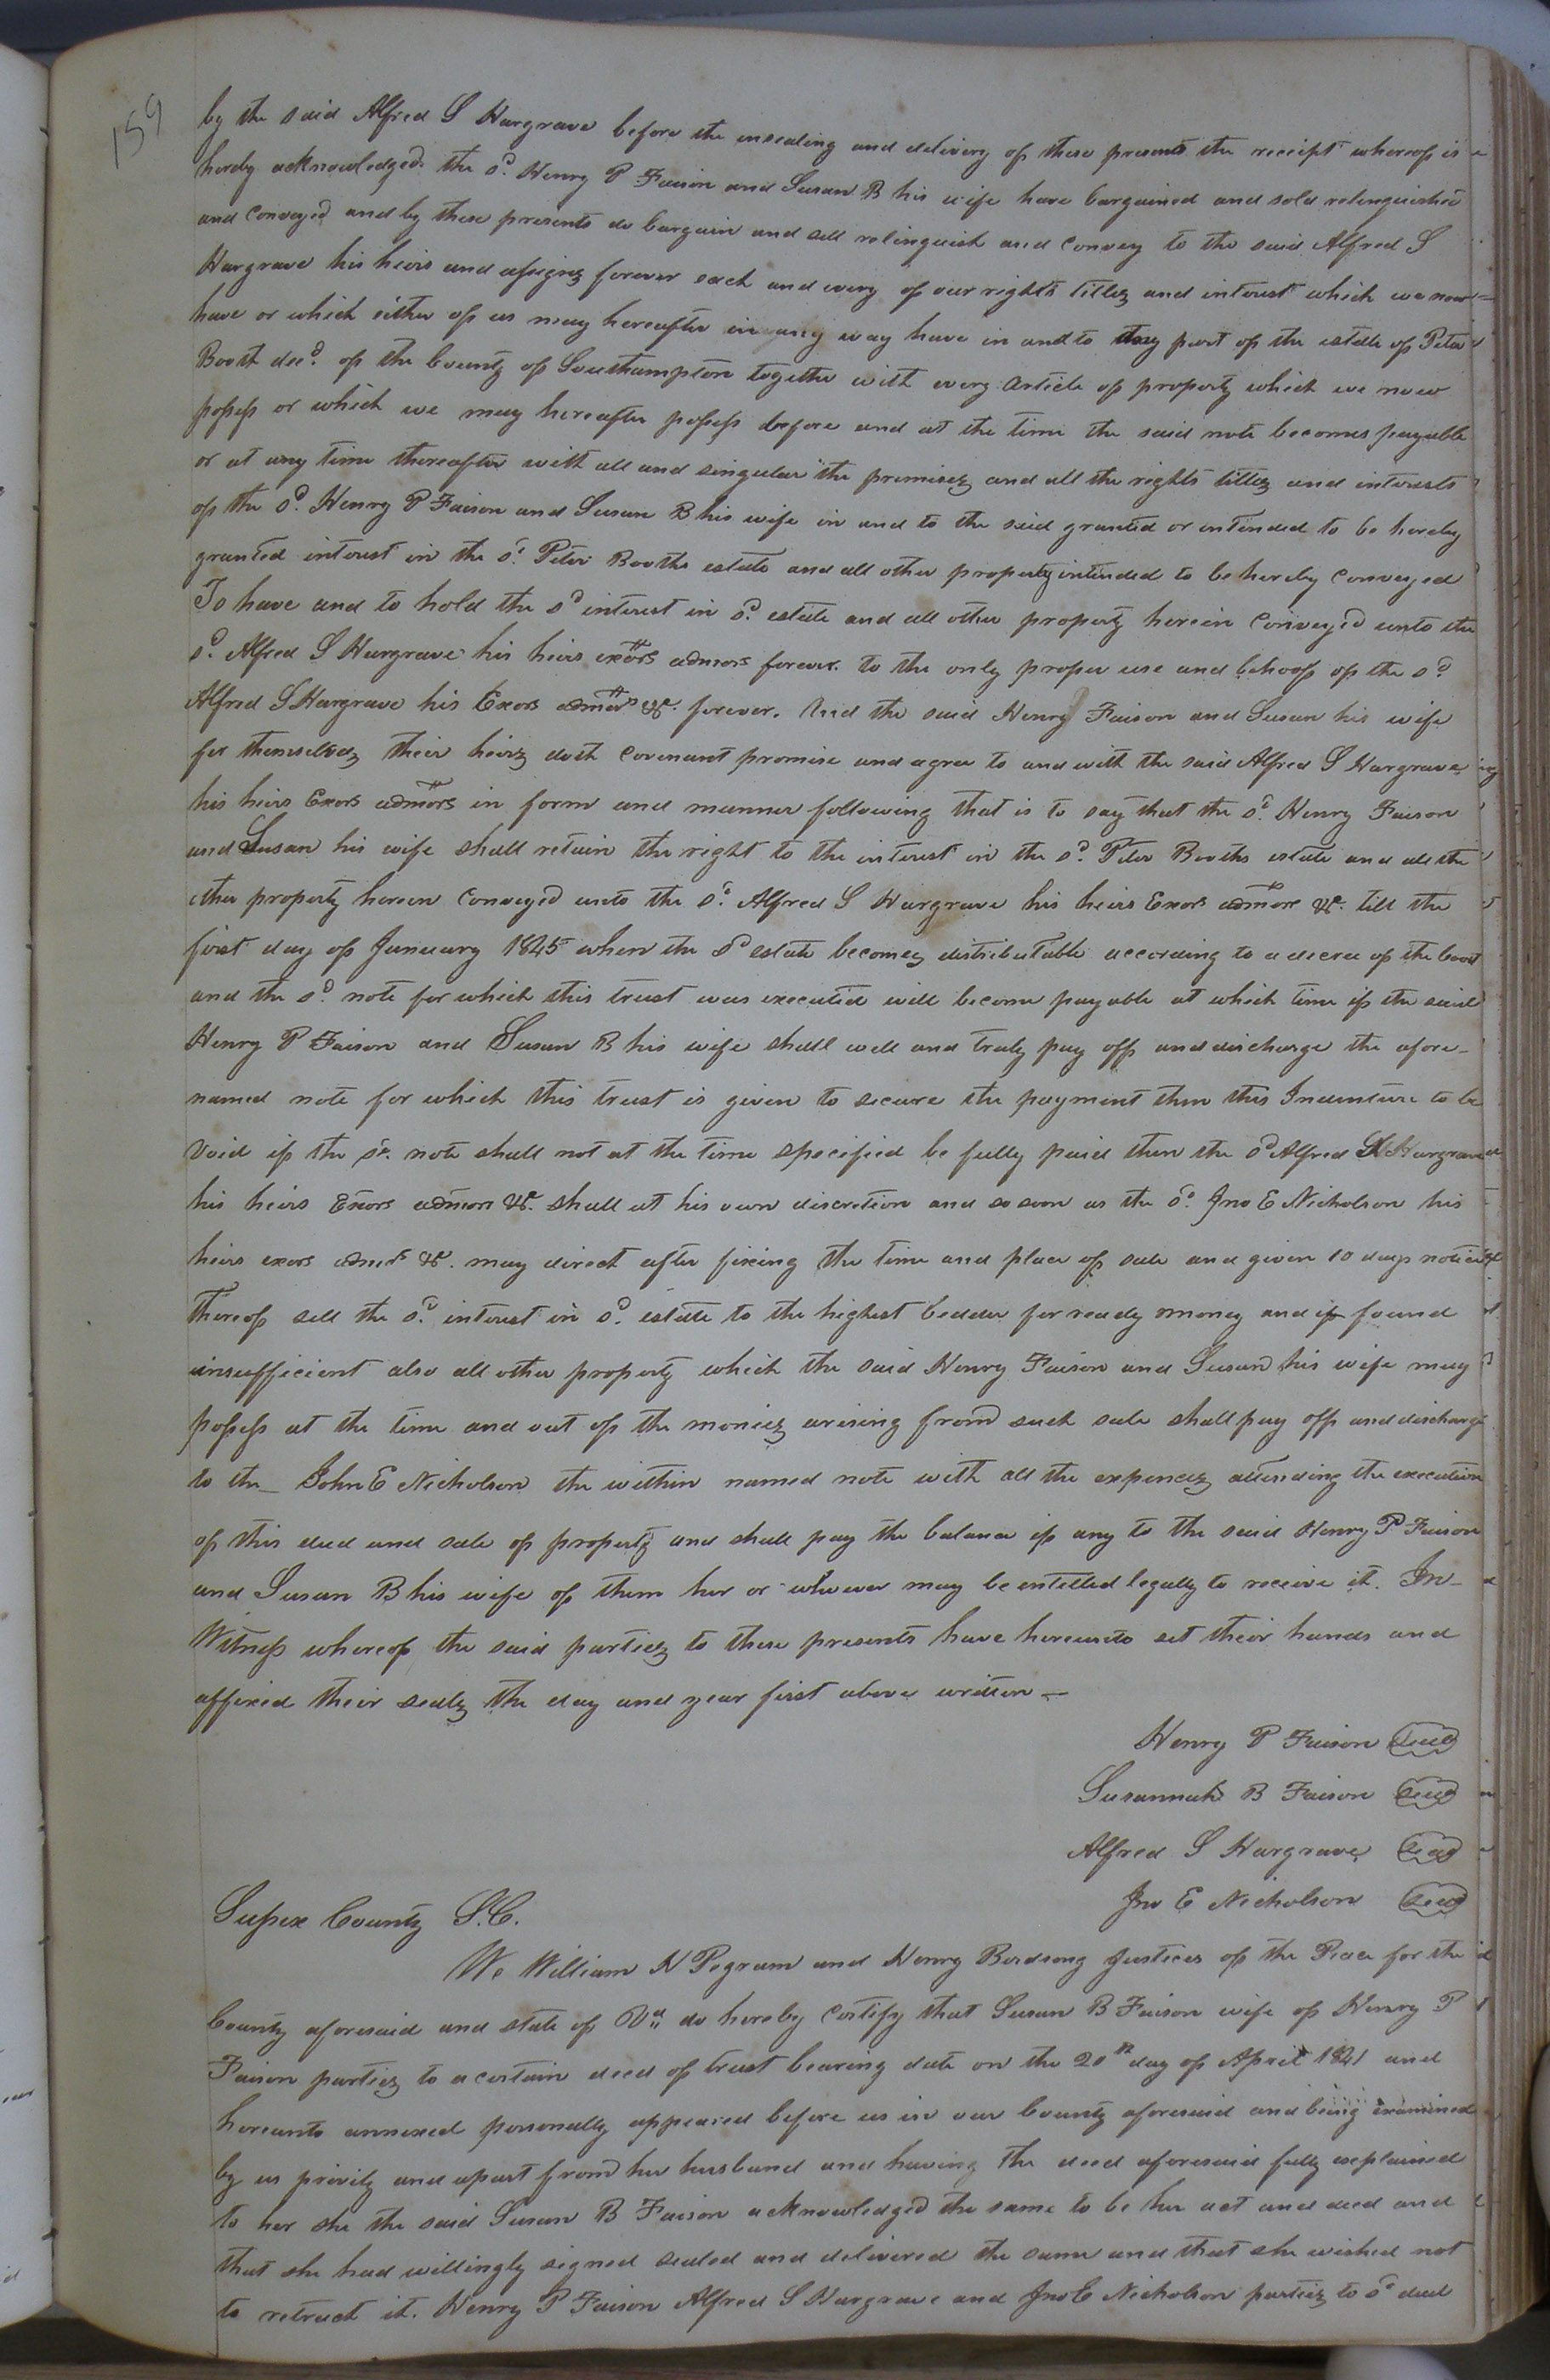 159
by the said Alfred S Hargrave before the ensealing and delivery of these presents the receipt whereof is
hereby acknowledged. the sd. Henry P Faison and Susan B his wife have bargained and sold relinquished
and conveyed and by these presents do bargain and sell relinquish and convey to the said Alfred S
Hargrave his heirs and assigns forever each and every of our rights titles and interest which we now
have or which either of us may hereafter in any way have in and to any part of the estate of Peter
Booth decd. of the County of Southampton together with every article of property which we now
possess or which we may hereafter possess before and at the time the said note becomes payable
or at any time thereafter with all and singular the premises and all the rights titles and interests
of the sd. Henry P Faison and Susan B his wife in and to the said granted or intended to be hereby
granted interest in the sd. Peter Booths estate and all other property intended to be hereby conveyed
To have and to hold the sd interest in sd. estate and all other property herein Conveyed unto the
sd. Alfred S Hargrave his heirs exors admors forever. to the only proper use and behoof of the sd.
Alfred S Hargrave his Exors admors &c. forever. And the said Henry Faison and Susan his wife
for themselves their heirs doth Covenant promise and agree to and with the said Alfred S Hargrave
his heirs Exors admors in form and manner following that is to say that the sd. Henry Faison
and Susan his wife shall retain the right to the interest in the sd. Peter Booths estate and all the
other property herein Conveyed unto the sd. Alfred S Hargrave his heirs Exors admors &c. till the
first day of January 1845 when the sd estate becomes distributable according to a decree of the Court
and the sd. note for which this trust was executed will become payable at which time if the said
Henry P Faison and Susan B his wife shall well and truly pay off and discharge the afore-
named note for which this trust is given to secure the payment then this Indenture to be
void if the sd. note shall not at the time specified be fully paid then the sd Alfred S Hargrave
his heirs Exors admors &c. shall at his own discretion and so soon as the sd. Jno E Nicholson his
heirs exors admrs &c. may direct after fixing the time and place of sale and given 10 days notice
thereof sell the sd. interest in sd. estate to the highest bedder for ready money and if found
insufficient also all other property which the said Henry Faison and Susan his wife may
possess at the time and out of the monies arising from such sale shall pay off and discharge
to the _ John E Nicholson the within named note with all the expences attending the execution
of this deed and sale of property and shall pay the balance if any to the said Henry P Faison
and Susan B his wife of them her or whoever may be entitled legally to receive it. In-
Witness whereof the said parties to these presents have hereunto set their hands and
affixed their seals the day and year first above written —
Henry P Faison Seal
Susannah B Faison Seal
Alfred S Hargrave Seal
Jno E Nicholson Seal
Sussex County S.C.
We William N Pegram and Henry Birdsong Justices of the Peace for the
County aforesaid and state of Va do hereby certify that Susan B Faison wife of Henry P
Faison parties to a certain deed of trust bearing date on the 20th day of April 1841 and
hereunto annexed personally appeared before us in our County aforesaid and being examined
by us privily and apart from her husband and having the deed aforesaid fully explained
to her she the said Susan B Faison acknowledged the same to be her act and deed and
that she had willingly signed sealed and delivered the same and that she wished not
to retract it. Henry P Faison Alfred S Hargrave and Jno E Nicholson parties to sd deed